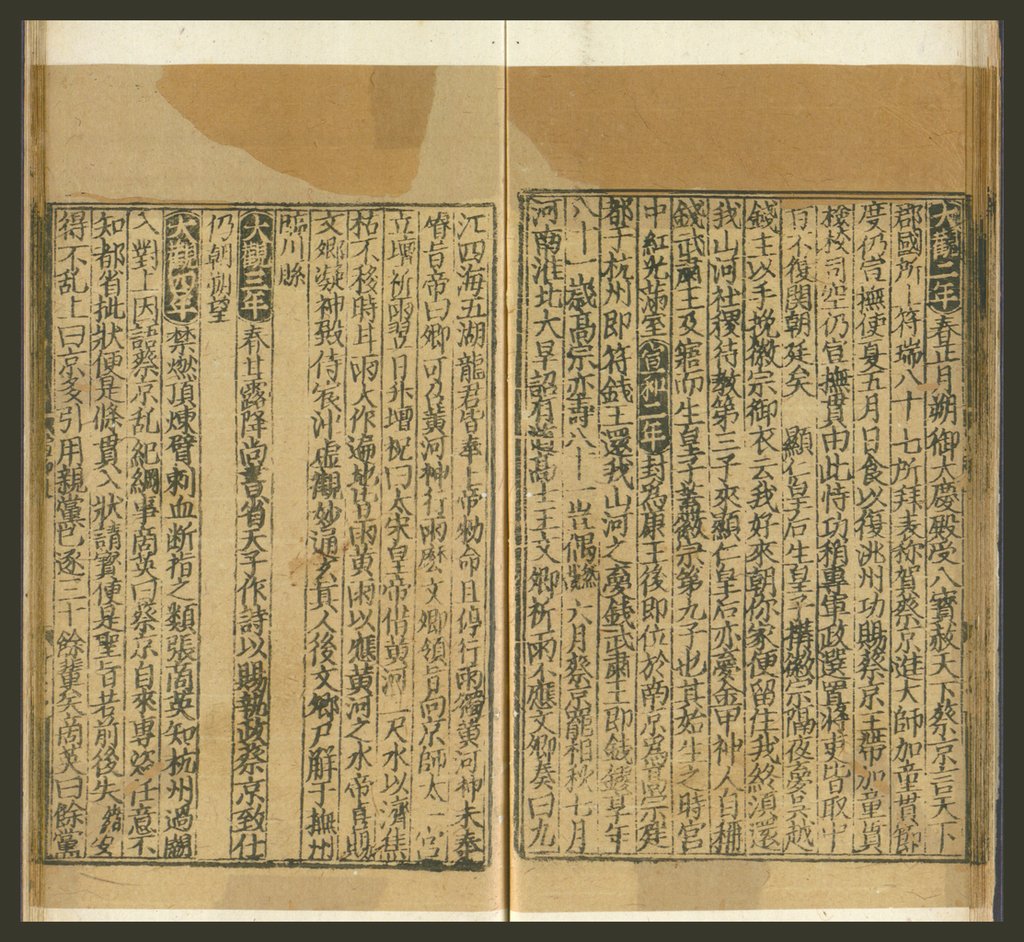 大觀二年春正月朔御大慶殿受八寶赦天下蔡京言天下
郡國所上符瑞八十七所拜表称賀蔡京進太師加童貫節
度仍宣撫使夏五月日食以復洮州功賜蔡京玉帶加童貫
檢校司空仍宣撫貫由此恃功稍專軍政選置將吏皆取中
旨不復関朝廷矣 顯仁皇后生皇子構徽宗隔夜夢吳越
錢王以手挽徽宗御衣云我好來朝你家便留住我終須還
我山河社稷待教第三子來顯仁皇后亦夢金甲神人自稱
錢武肅王及寤而生皇子蓋徽宗第九子也其始生之時宮
中紅光滿室宣和二年封為康王後即位於南京為高宗建
都于杭州即符錢王還我山河之夢錢武肅王即錢鏐享年
八十一歲高宗亦壽八十一豈偶然哉 六月蔡京罷相秋七月
河南淮北大旱詔有道高士王文卿祈雨不應文卿奏曰九
江四海五湖龍君皆奉上帝勑命且停行雨獨黃河神未奉
睿旨帝曰卿可召黃河神行雨麽文卿領旨向京師太一宮
立壇祈雨翌日升壇祝曰太宋皇帝借黃河一尺水以濟焦
枯不移時且雨大作遍地皆雨黃雨以應黃河之水帝真賜
文卿凝神殿侍宸沖虚觀妙通玄真人後文卿尸解于撫州
臨川縣
大觀三年春甘露降尚書省天子作詩以賜執政蔡京致仕
仍朝朔望
大觀四年禁燃頂煉臂刺血断指之類張啇英知杭州過闕
入對上因語蔡京乱紀綱事商英曰蔡京自來專恣任意不
知都省批狀便是條貫入狀請寶便是聖旨若前後失錯安
得不乱上曰京多引用親黨已逐三十餘輩矣啇英曰餘黨